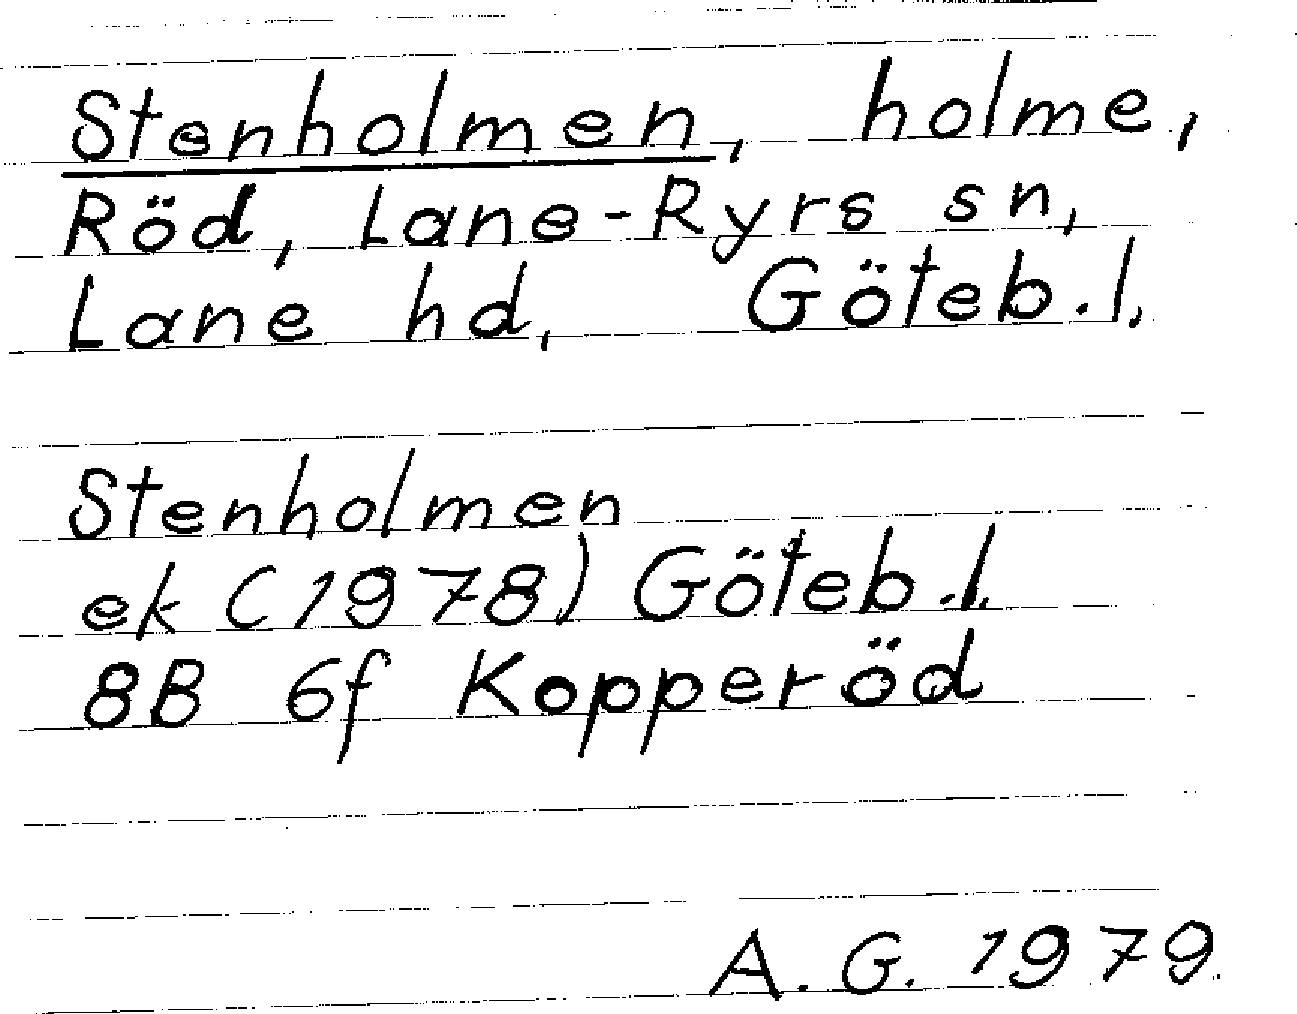 Stenholmen, holme,
Röd, Lane-Ryrs sn,
Lane hd, Göteb.l.
Stenholmen
ek (1978) Göteb.l.
8B 6f Kopperöd
A. G. 1979.